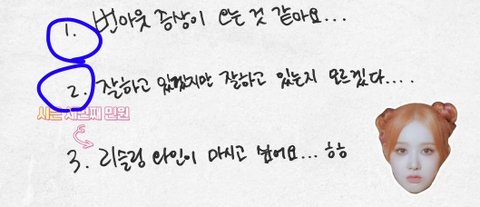 1. 번아웃 증상이 오는 것 같아요...
2. 잘하고 있겠지만 잘하고 있는지 모르겠다....
시즌 세번째 민원
3. 리슬링 와인이 마시고 싶어요... ㅎㅎ